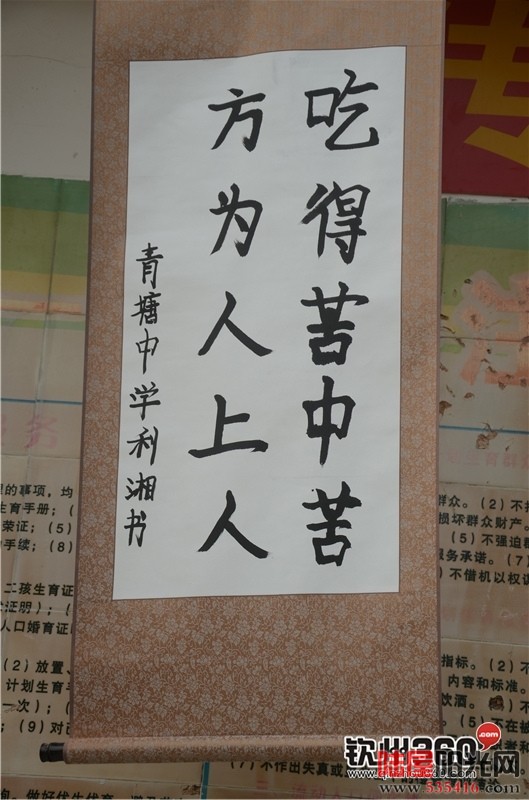 吃得苦中苦
方为人上人
青塘中学利湘书
的事项，均
生育手册；（
荣证；（5）
手续；（8）
二孩生育证
证明）；（
人口婚育证
（2）放置、
计划生育手
一次）；（
（9）对
群众。（2）不
损坏群众财产。
（5）不强迫群
服务承诺。（7）
不借机以权谋
指标。（2）不
内容和标准。
饮酒。
（5）不在被
（7）不作出失真或
做好优生优育
钦州360.com
阳光网
www.555416.com